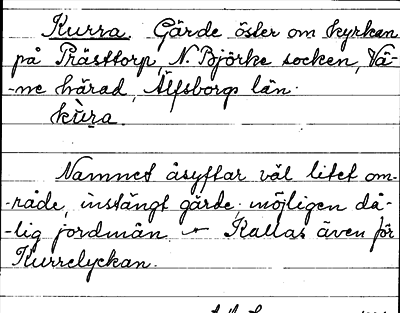 Kurra. Gärde öster om kyrkan
på Prästtorp, N. Björke socken, Vä-
-ne härad, Älfsborgs län.
kùra.
Namnet åsyftar väl litet om-
-råde, instängt gärde; möjligen då-
-lig jordmån. — Kallas även för
Kurrelyckan.